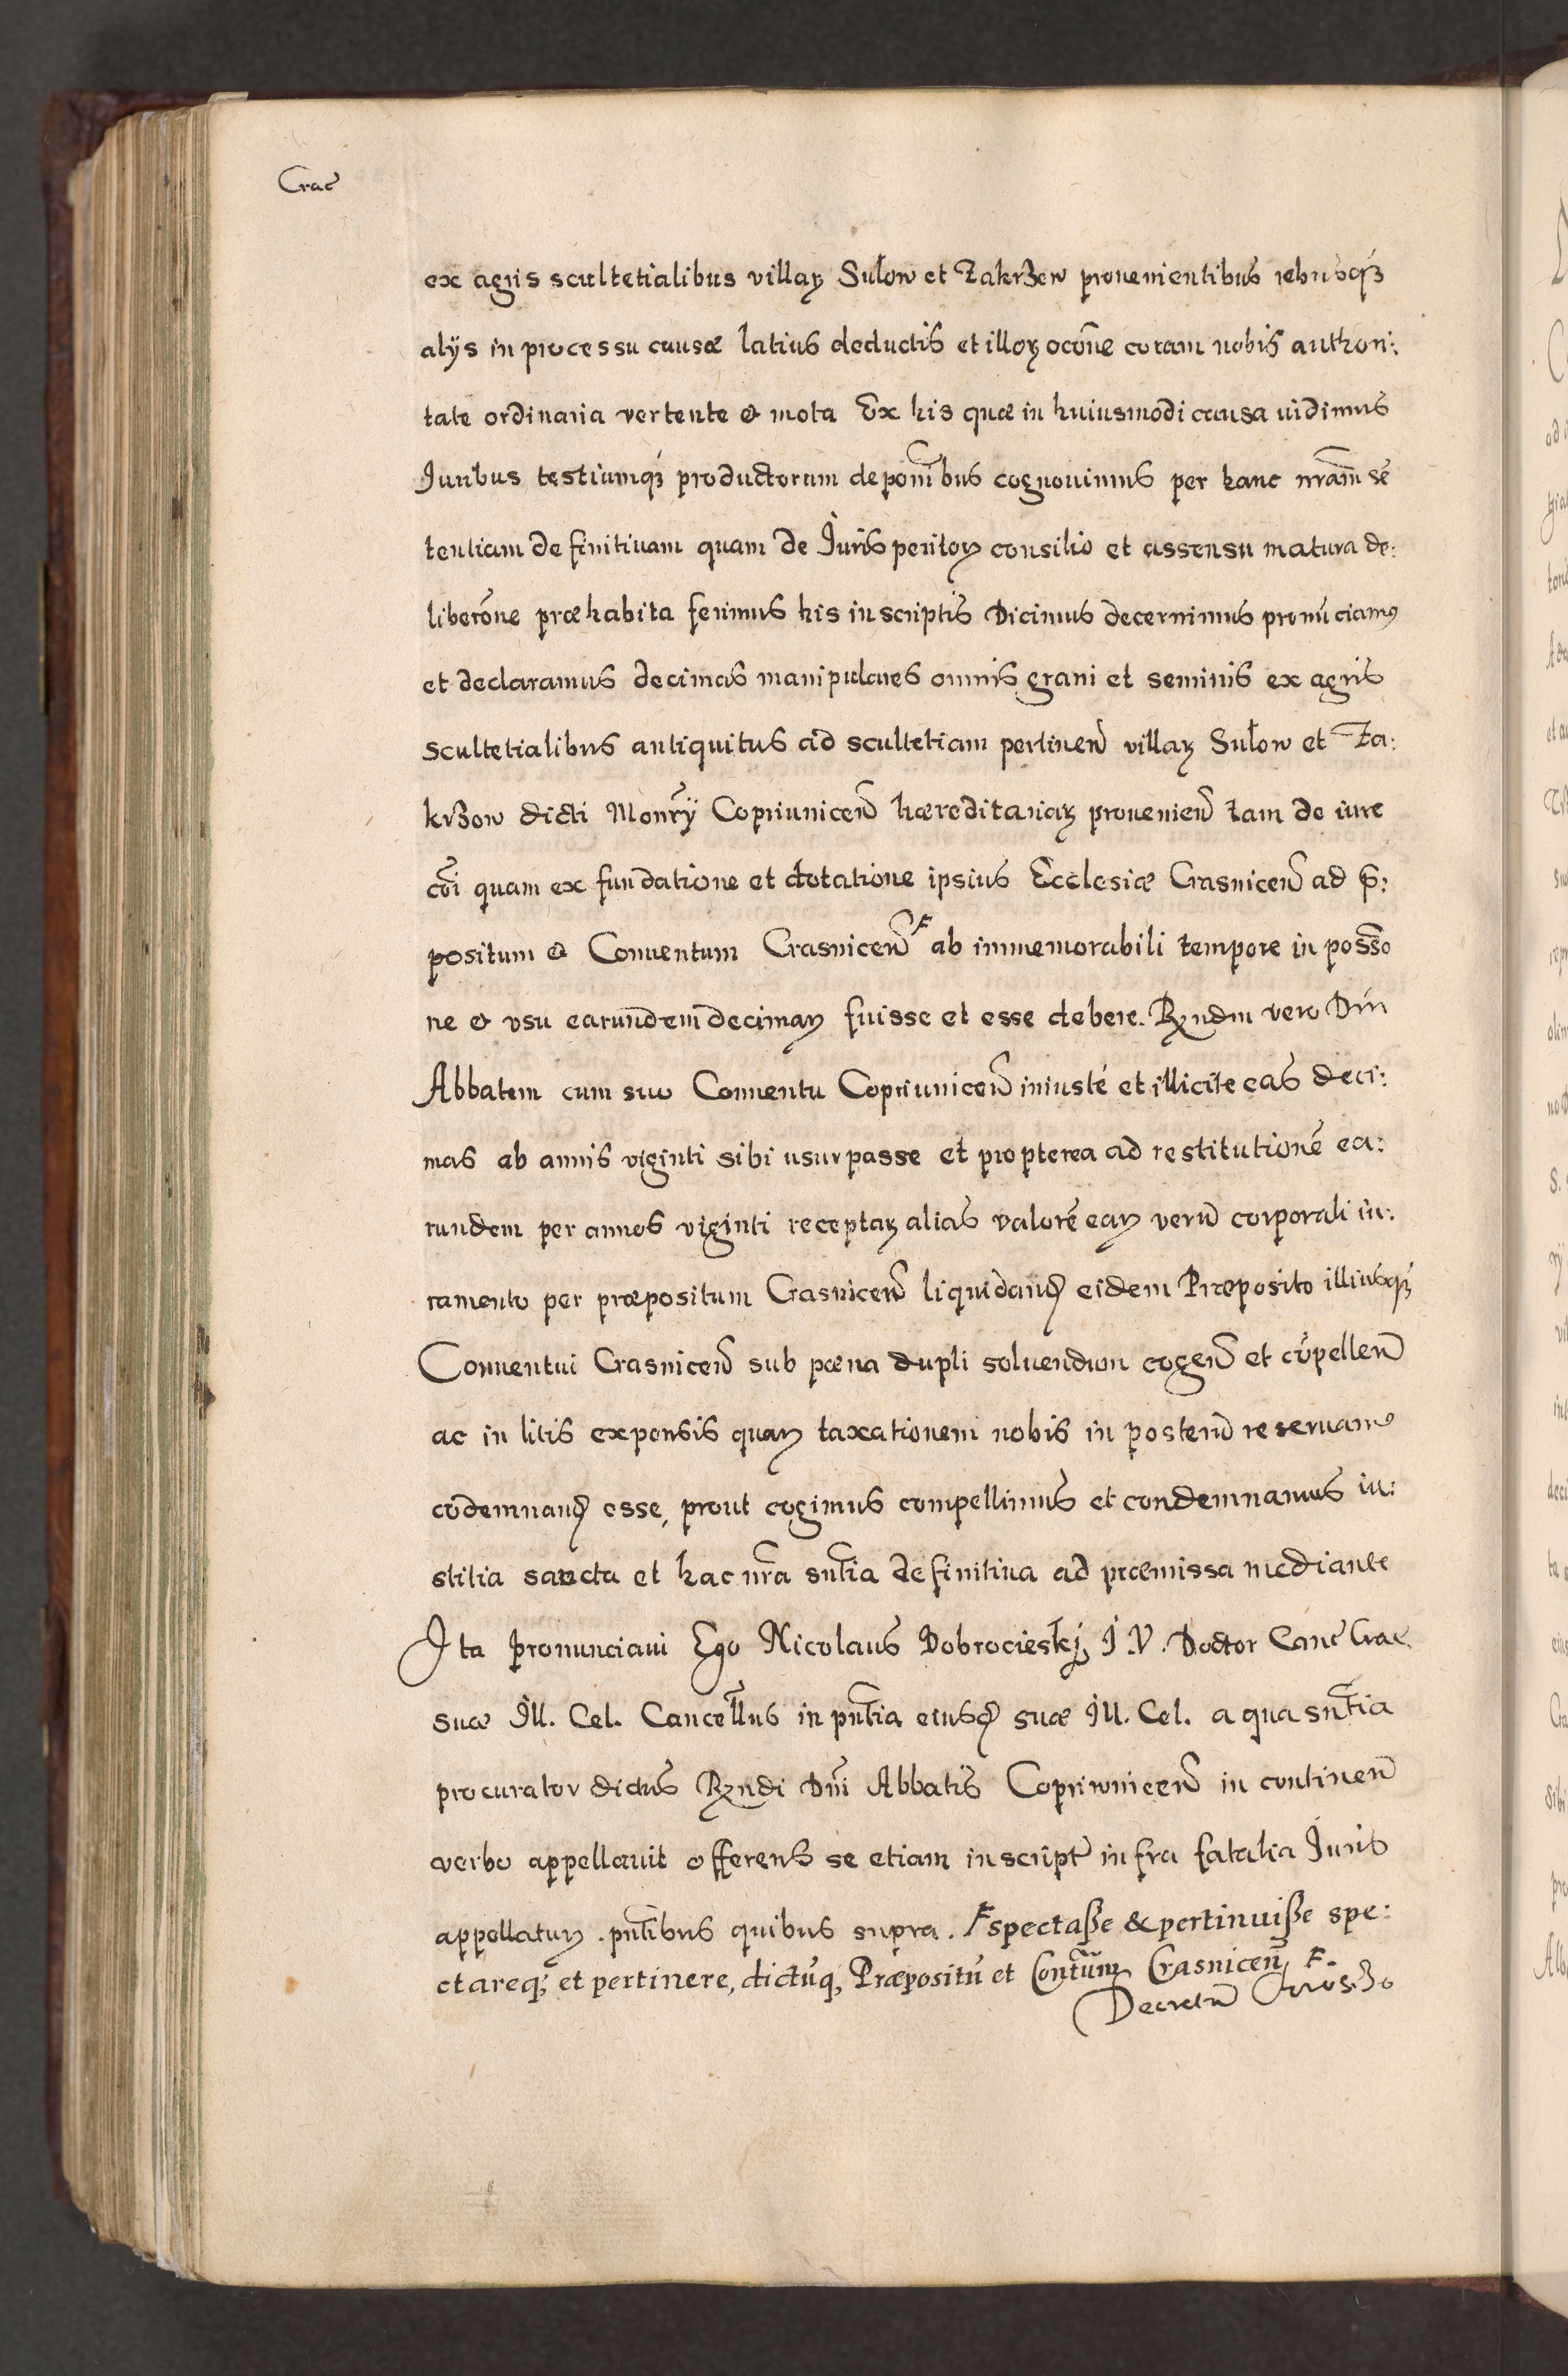 Crac̃
ex agris scultetialibus villaꝝ Sulow et Zakrzew prouenientibus rebusqꝫ
alÿs in processu causæ latius deductis et illoꝝ occõne coram nobis authori:
tate ordinaria vertente & mota Ex his quæ in huiusmodi causa uidimus
Juribus testiumqꝫ productorum deponĩbus cognouimus per hanc nr̃am sẽ
tentiam definitiuam quam de Jurisperitoꝝ consilio et assensu matura de:
liberõne præhabita ferimus his in scriptis Dicimus decernimus pronũciamꝰ
et declaramus decimas manipulares omnis grani et seminis ex agris
scultetialibus antiquitus ad scultetiam pertineñ villaꝝ Sulow et Za:
krzow dicti Monrÿ Copriuniceñ hæreditariaꝝ prouenieñ tam de iure
cõi quam ex fundatione et dotatione ipsius Ecclesiæ Crasniceñ ad p̃:
positum & Conuentum Crasniceñ F ab immemorabili tempore in posso
ne & vsu earundem decimaꝝ fuisse et esse debere. Rndm vero Dñ
Abbatem cum suo Conuentu Copriuniceñ iniusté et illicite eas deci:
mas ab annis viginti sibi usurpasse et propterea ad restitutionẽ ea:
rundem per annos viginti receptaꝝ alias valorẽ eaꝝ verũ corporali iu:
ramento per præpositum Crasniceñ liquidanđ eidem Præposito illiusqꝫ
Conuentui Crasniceñ sub pœna dupli soluendum cogeñ et cõpelleñ
ac in litis expensis quaꝝ taxationem nobis in posterũ reseruamꝰ
cõdemnanđ esse, prout cogimus compellimus et condemnamus iu:
stitia sancta et hac nr̃a sñtia definitiua ad præmissa mediante
Ita pronunciaui Ego Nicolaus Dobrocieskj J. V. Doctor Canc̃ Crac̃
suæ Ill. Cel. Cancell̃us in pñtia eiusđ suæ Ill. Cel. a qua sñtia
procurator dictus Rndi Dñi Abbatis Copriwniceñ in contineñ
verbo appellauit offerens se etiam in script̃ infra fatalia Juris
appellatuꝝ. pñtibus quibus supra. F spectaße & pertinuiße spe:
ctareq; et pertinere, dictũq, Præpositũ et Conṽtum Crasniceñ F.
Decretũ